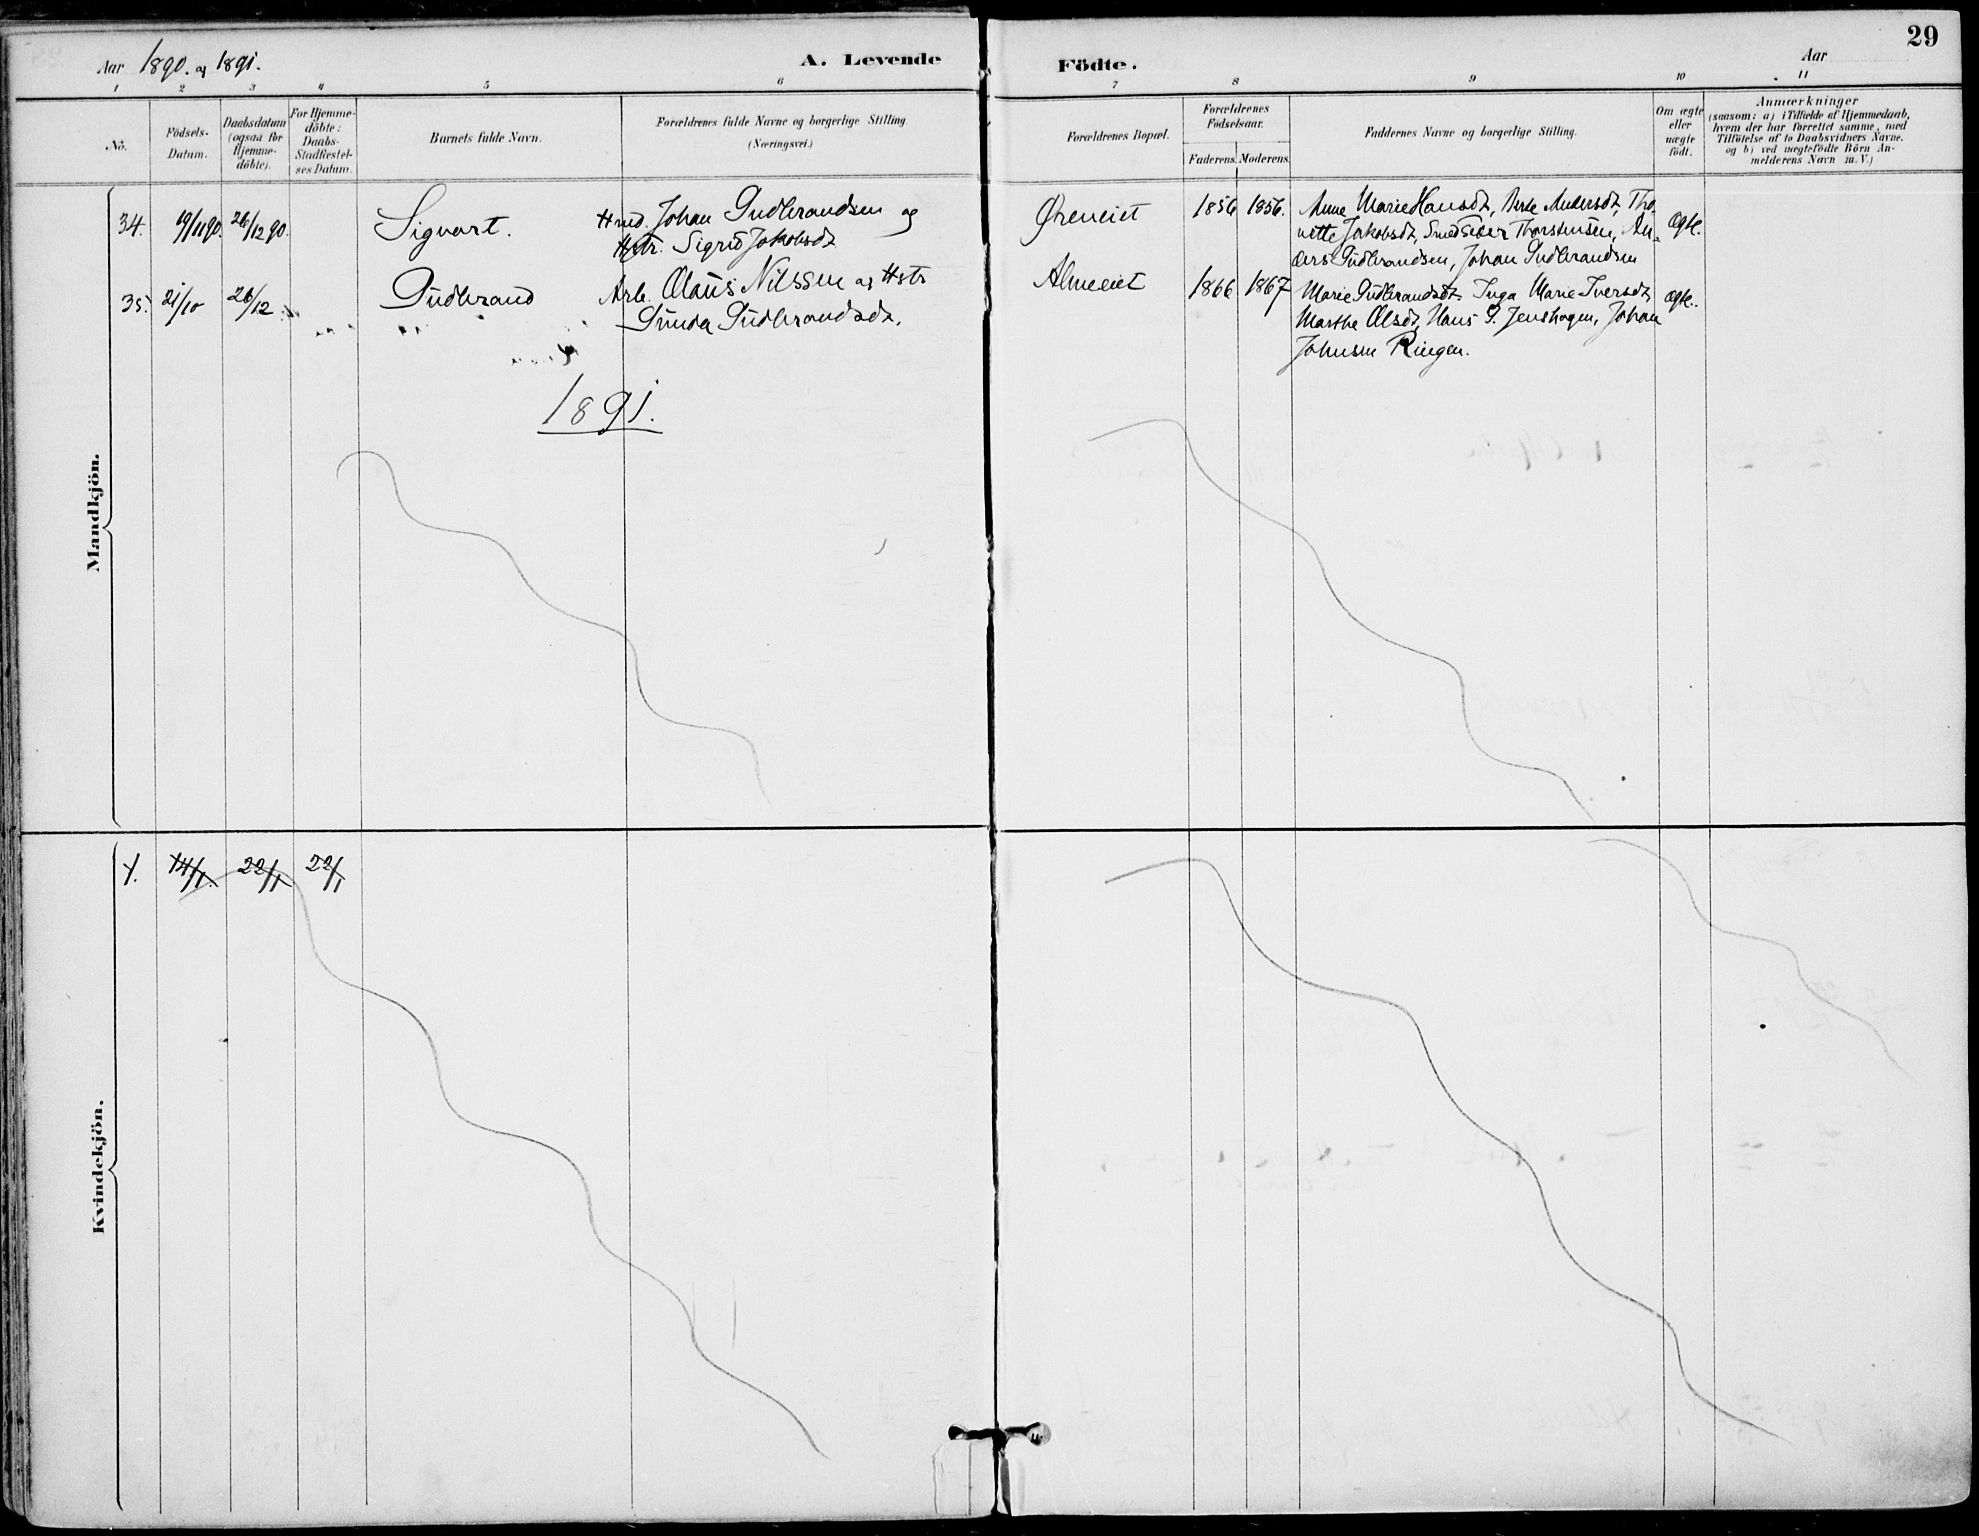 Aar 1890. og 1891.
A. Levende Födte.
Aar
29
1 2 3 4 5 6 7 8 9 10 11
No.
Födsels-Datum.
Daabsdatum (ogsaa for Hjemme-döbte).
For Hjemme-döbte: Daabs-Stadfæstel-ses Datum.
Barnets fulde Navn.
Forældrenes fulde Navne og borgerlige Stilling.
(Næringsvei.)
Forældrenes Bopæl.
Forældrenes Födselsaar.
Faderens. Moderens.
Faddernes Navne og borgerlige Stilling.
Om ægte eller uægte födt.
Anmærkninger
(saasom: a) i Tilfælde af Hjemmedaab,
hvem der har forrettet samme, med
Tilföielse af to Daabsvidners Navne.
og b) ved uægtefödte Börn An-
melderens Navn m. V.)
Mandkjön.
34. 19/11 90. 26/12 90. Sigvart. Hmd. Johan Gudbrandsen og
Hstr. Sigrid Jakobsdt
1856 1856. Anne Marie Hansdt, Berte Andersdt, Tho-
nette Jakobsdt, Smed Thorstensen, An-
ders Gudbrandsen, Johan Gudbrandsen
ægte.
35. 21/10 26/12 Gudbrand Arb. Olaus Nilssen og Hstr
Gunda Gudbrandsdt.
Almeeiet 1866 1867 Marie Gudbrandsdt. Inga Marie Iversdt,
Marthe Olsdt, Hans G. Jenshagen, Johan
Johnsen Ringen.
ægte.
1891.
Kvindekjön.
1. 14/1. 22/1 22/1